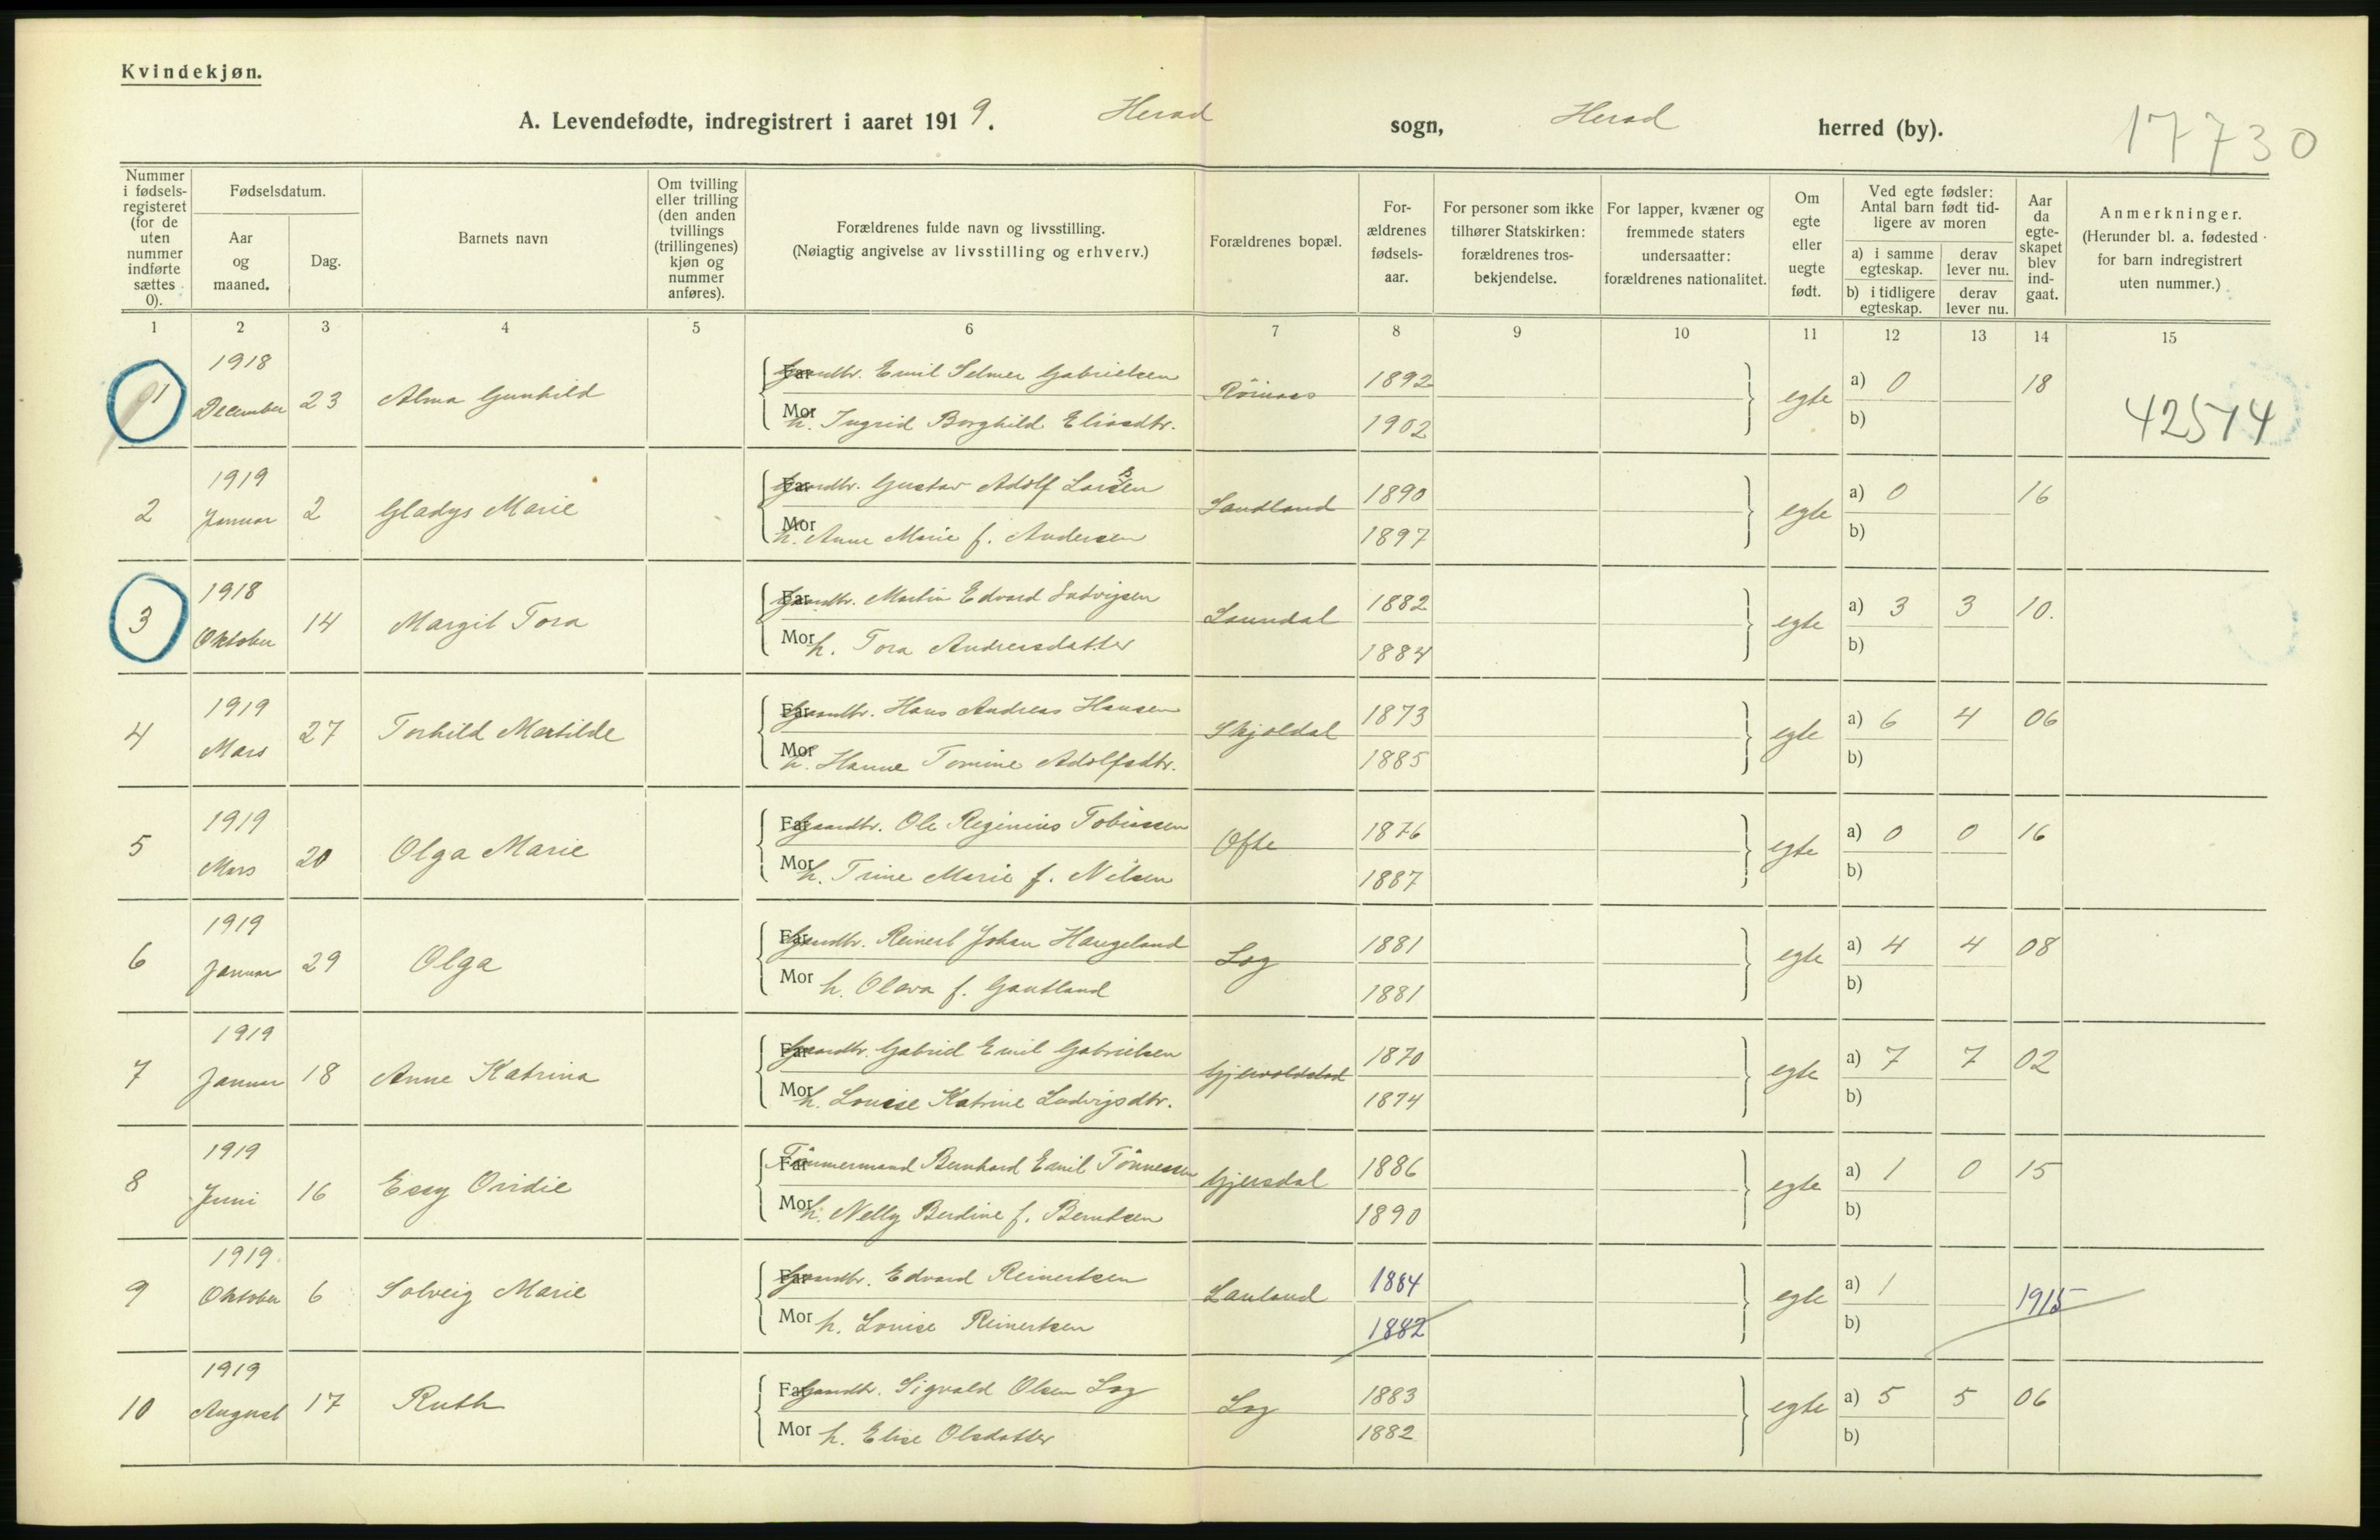 Kvindekjøn.
A. Levendefødte, indregistrert i aaret 1919. Herad sogn, Herad herred (by).
17730
Nummer i fødsels-registeret (for de uten nummer indførte sættes 0).
Fødselsdatum.
Aar og maaned.
Dag.
Barnets navn
Om tvilling eller trilling (den anden tvillings (trillingenes) kjøn og nummer anføres).
Forældrenes fulde navn og livsstilling.
(Nøiagtig angivelse av livsstilling og erhverv.)
Forældrenes bopæl.
For-ældrenes fødsels-aar.
For personer som ikke tilhører Statskirken: forældrenes tros-bekjendelse.
For lapper, kvæner og fremmede staters undersaatter: forældrenes nationalitet.
Om egte eller uegte født.
Ved egte fødsler: Antal barn født tid-ligere av moren
a) i samme egteskap. derav lever nu.
b) i tidligere egteskap. derav lever nu.
Aar da egte-skapet blev ind-gaat.
Anmerkninger.
(Herunder bl. a. fødested for barn indregistrert uten nummer.)
1 2 3 4 5 6 7 8 9 10 11 12 13 14 15
1 1918 December 23 Alma Gunhild Far Gaardbr. Emil Selmer Gabrielsen 1892 egte a) 0 18
Mor h. Ingrid Borghild Eliasdtr. 1902 b) 42574
2 1919 Januar 2 Gladys Marie Far Gaardbr. Gustav Adolf Larsen Sandland 1890 egte a) 0 16
Mor h. Anne Marie f. Andersen 1897 b)
3 1918 Oktober 14 Margit Tora Far Gaardbr. Martin Edvard Ludvigsen Laundal 1882 egte a) 3 3 10.
Mor h. Tora Andreasdatter 1884 b)
4 1919 Mars 27 Torhild Martilde Far Gaardbr. Hans Andreas Hansen Skjoldal 1873 egte a) 6 4 06
Mor h. Hanne Tomine Adolfsdtr. 1885 b)
5 1919 Mars 20 Olga Marie Far Gaardbr. Ole Reginius Tobiassen Ofte 1876 egte a) 0 0 16
Mor h. Trine Marie f. Nilsen 1887 b)
6 1919 Januar 29 Olga Far Gaardbr. Reinert Johan Haugeland Log 1881 egte a) 4 4 08
Mor h. Olava f. Gautland 1881 b)
7 1919 Januar 18 Anne Katrina Far Gaardbr. Gabriel Emil Gabrielsen Gjervoldstad 1870 egte a) 7 7 02
Mor h. Louise Katrine Ludvigsdtr. 1874 b)
8 1919 Juni 16 Essy Ovidie Far Tömmermand Bernhard Emil Tönnessen Gjersdal 1886 egte a) 1 0 15
Mor h. Nelly Berdine f. Berntsen 1890 b)
9 1919 Oktober 6 Solveig Marie Far Gaardbr. Edvard Reinertsen Lauland 1884 egte a) 1 1915
Mor h. Louise Reinertsen 1882 b)
10 1919 August 17 Ruth Far Gaardbr. Sigvald Olsen Log Log 1883 egte a) 5 5 06
Mor h. Elise Olsdatter 1882 b)